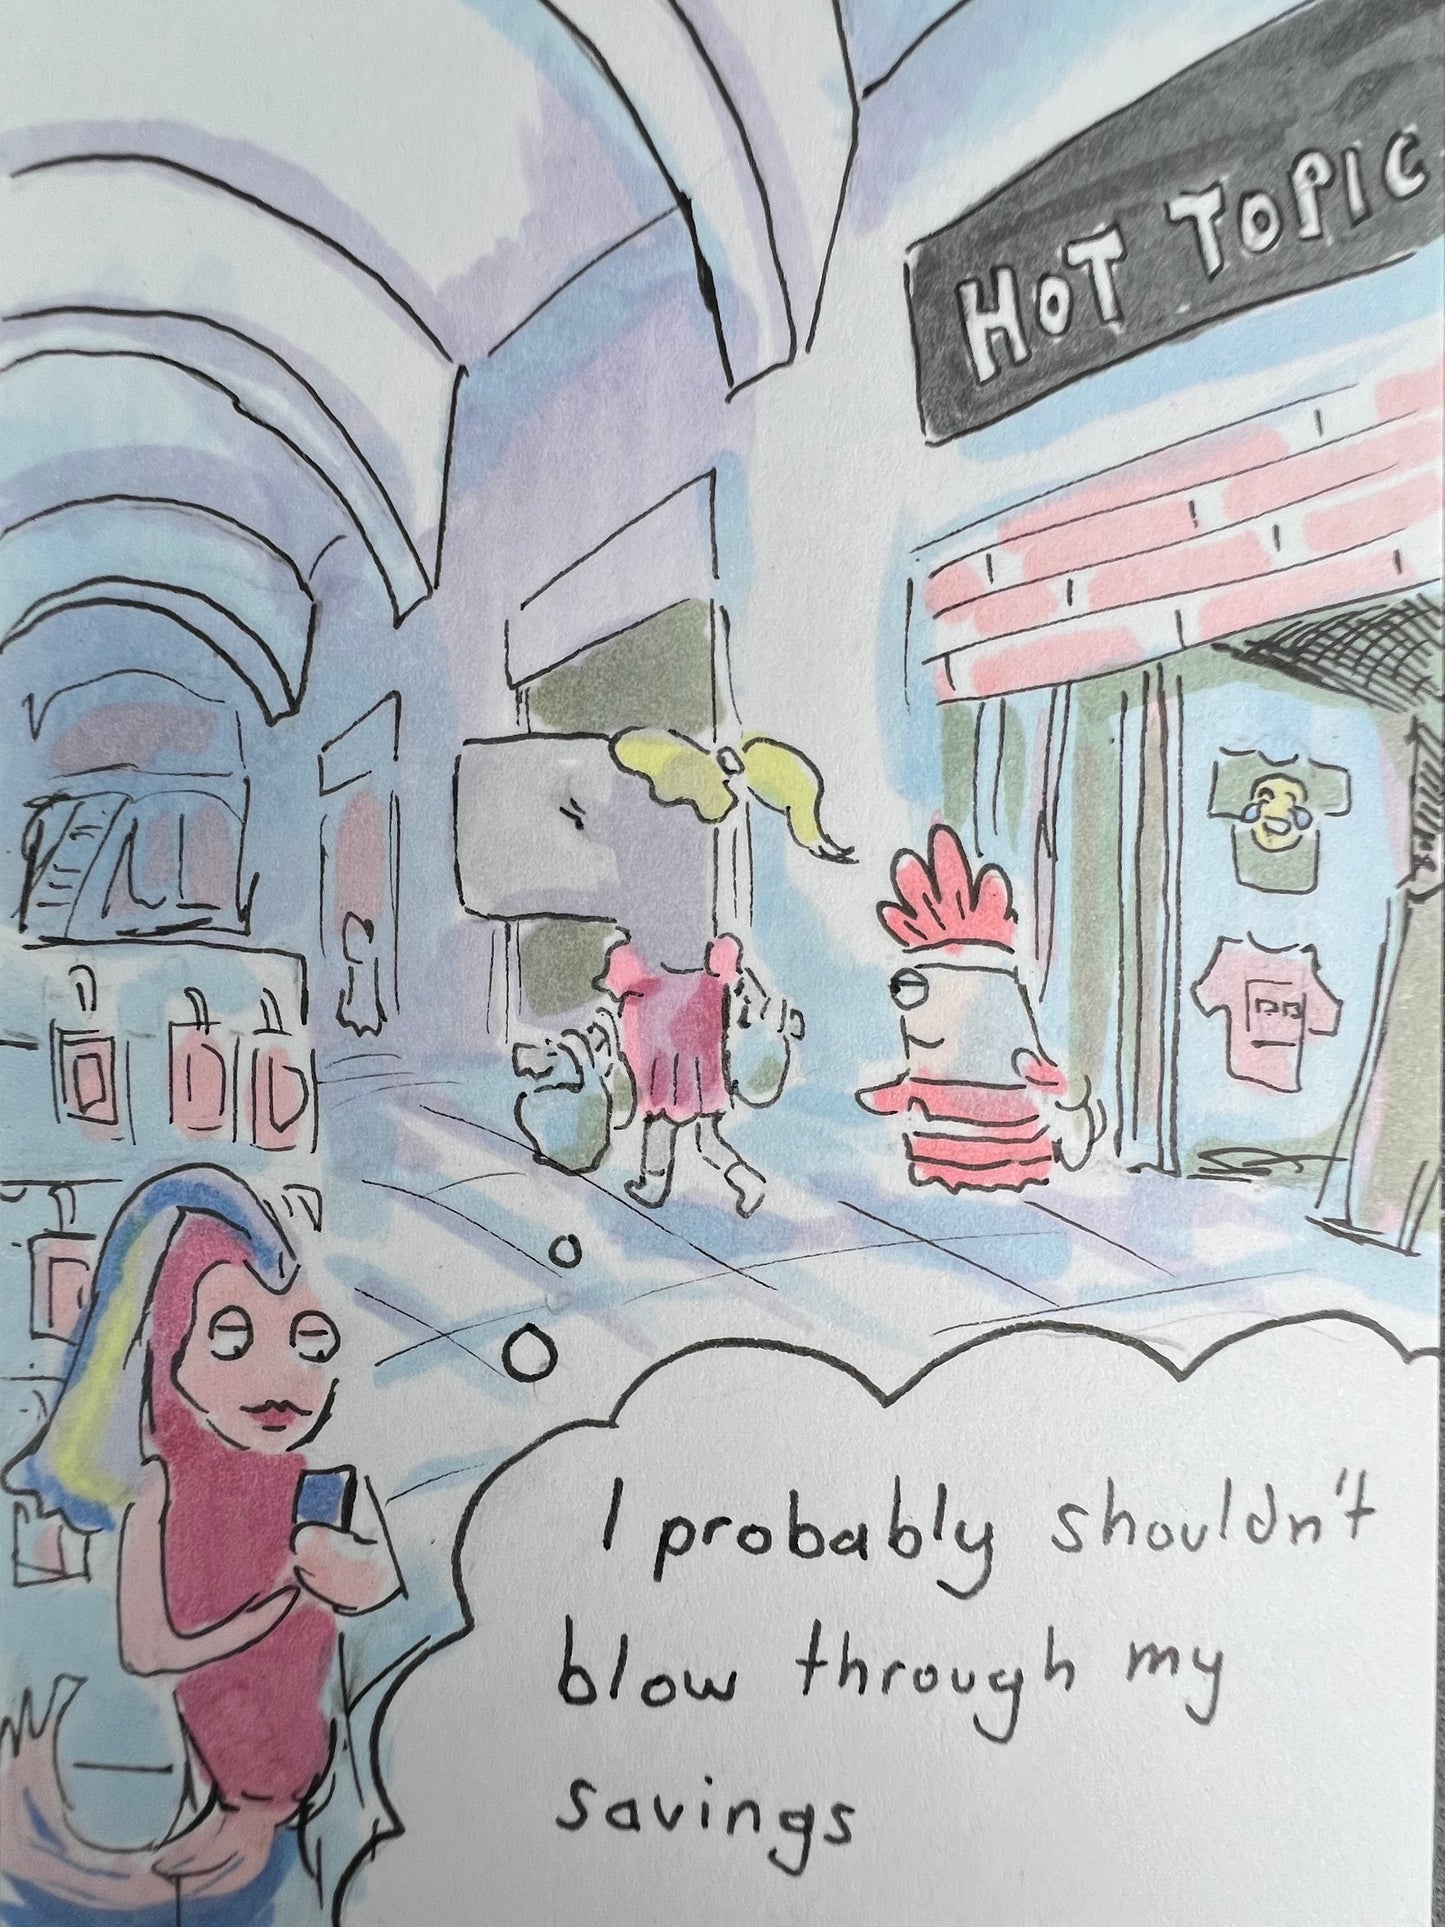 HOT TOPIC
I probably shouldn't
blow through my
savings